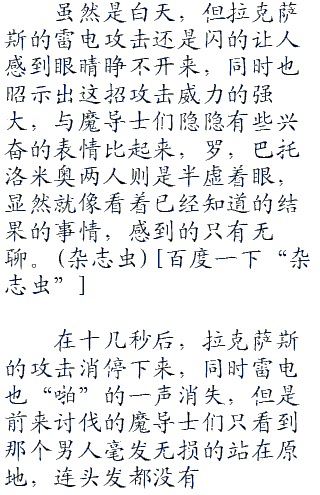 虽然是白天，但拉克萨
斯的雷电攻击还是闪的让人
感到眼睛睁不开来，同时也
昭示出这招攻击威力的强
大，与魔导士们隐隐有些兴
奋的表情比起来，罗，巴托
洛米奥两人则是半虚着眼，
显然就像看着已经知道的结
果的事情，感到的只有无
聊。(杂志虫)[百度一下“杂
志虫”]
在十几秒后，拉克萨斯
的攻击消停下来，同时雷电
也“啪”的一声消失，但是
前来讨伐的魔导士们只看到
那个男人毫发无损的站在原
地，连头发都没有